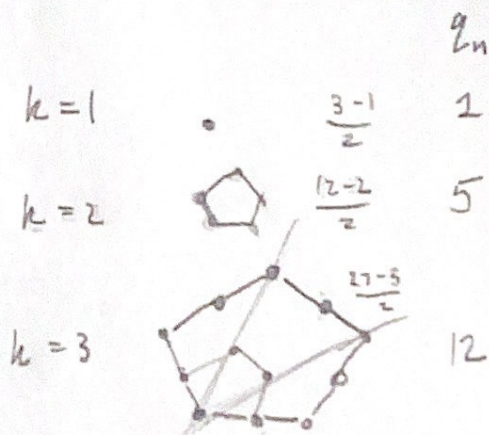 qₙ
k = 1 (3-1)/2 1
k = 2 (12-2)/2 5
k = 3 (27-3)/2 12